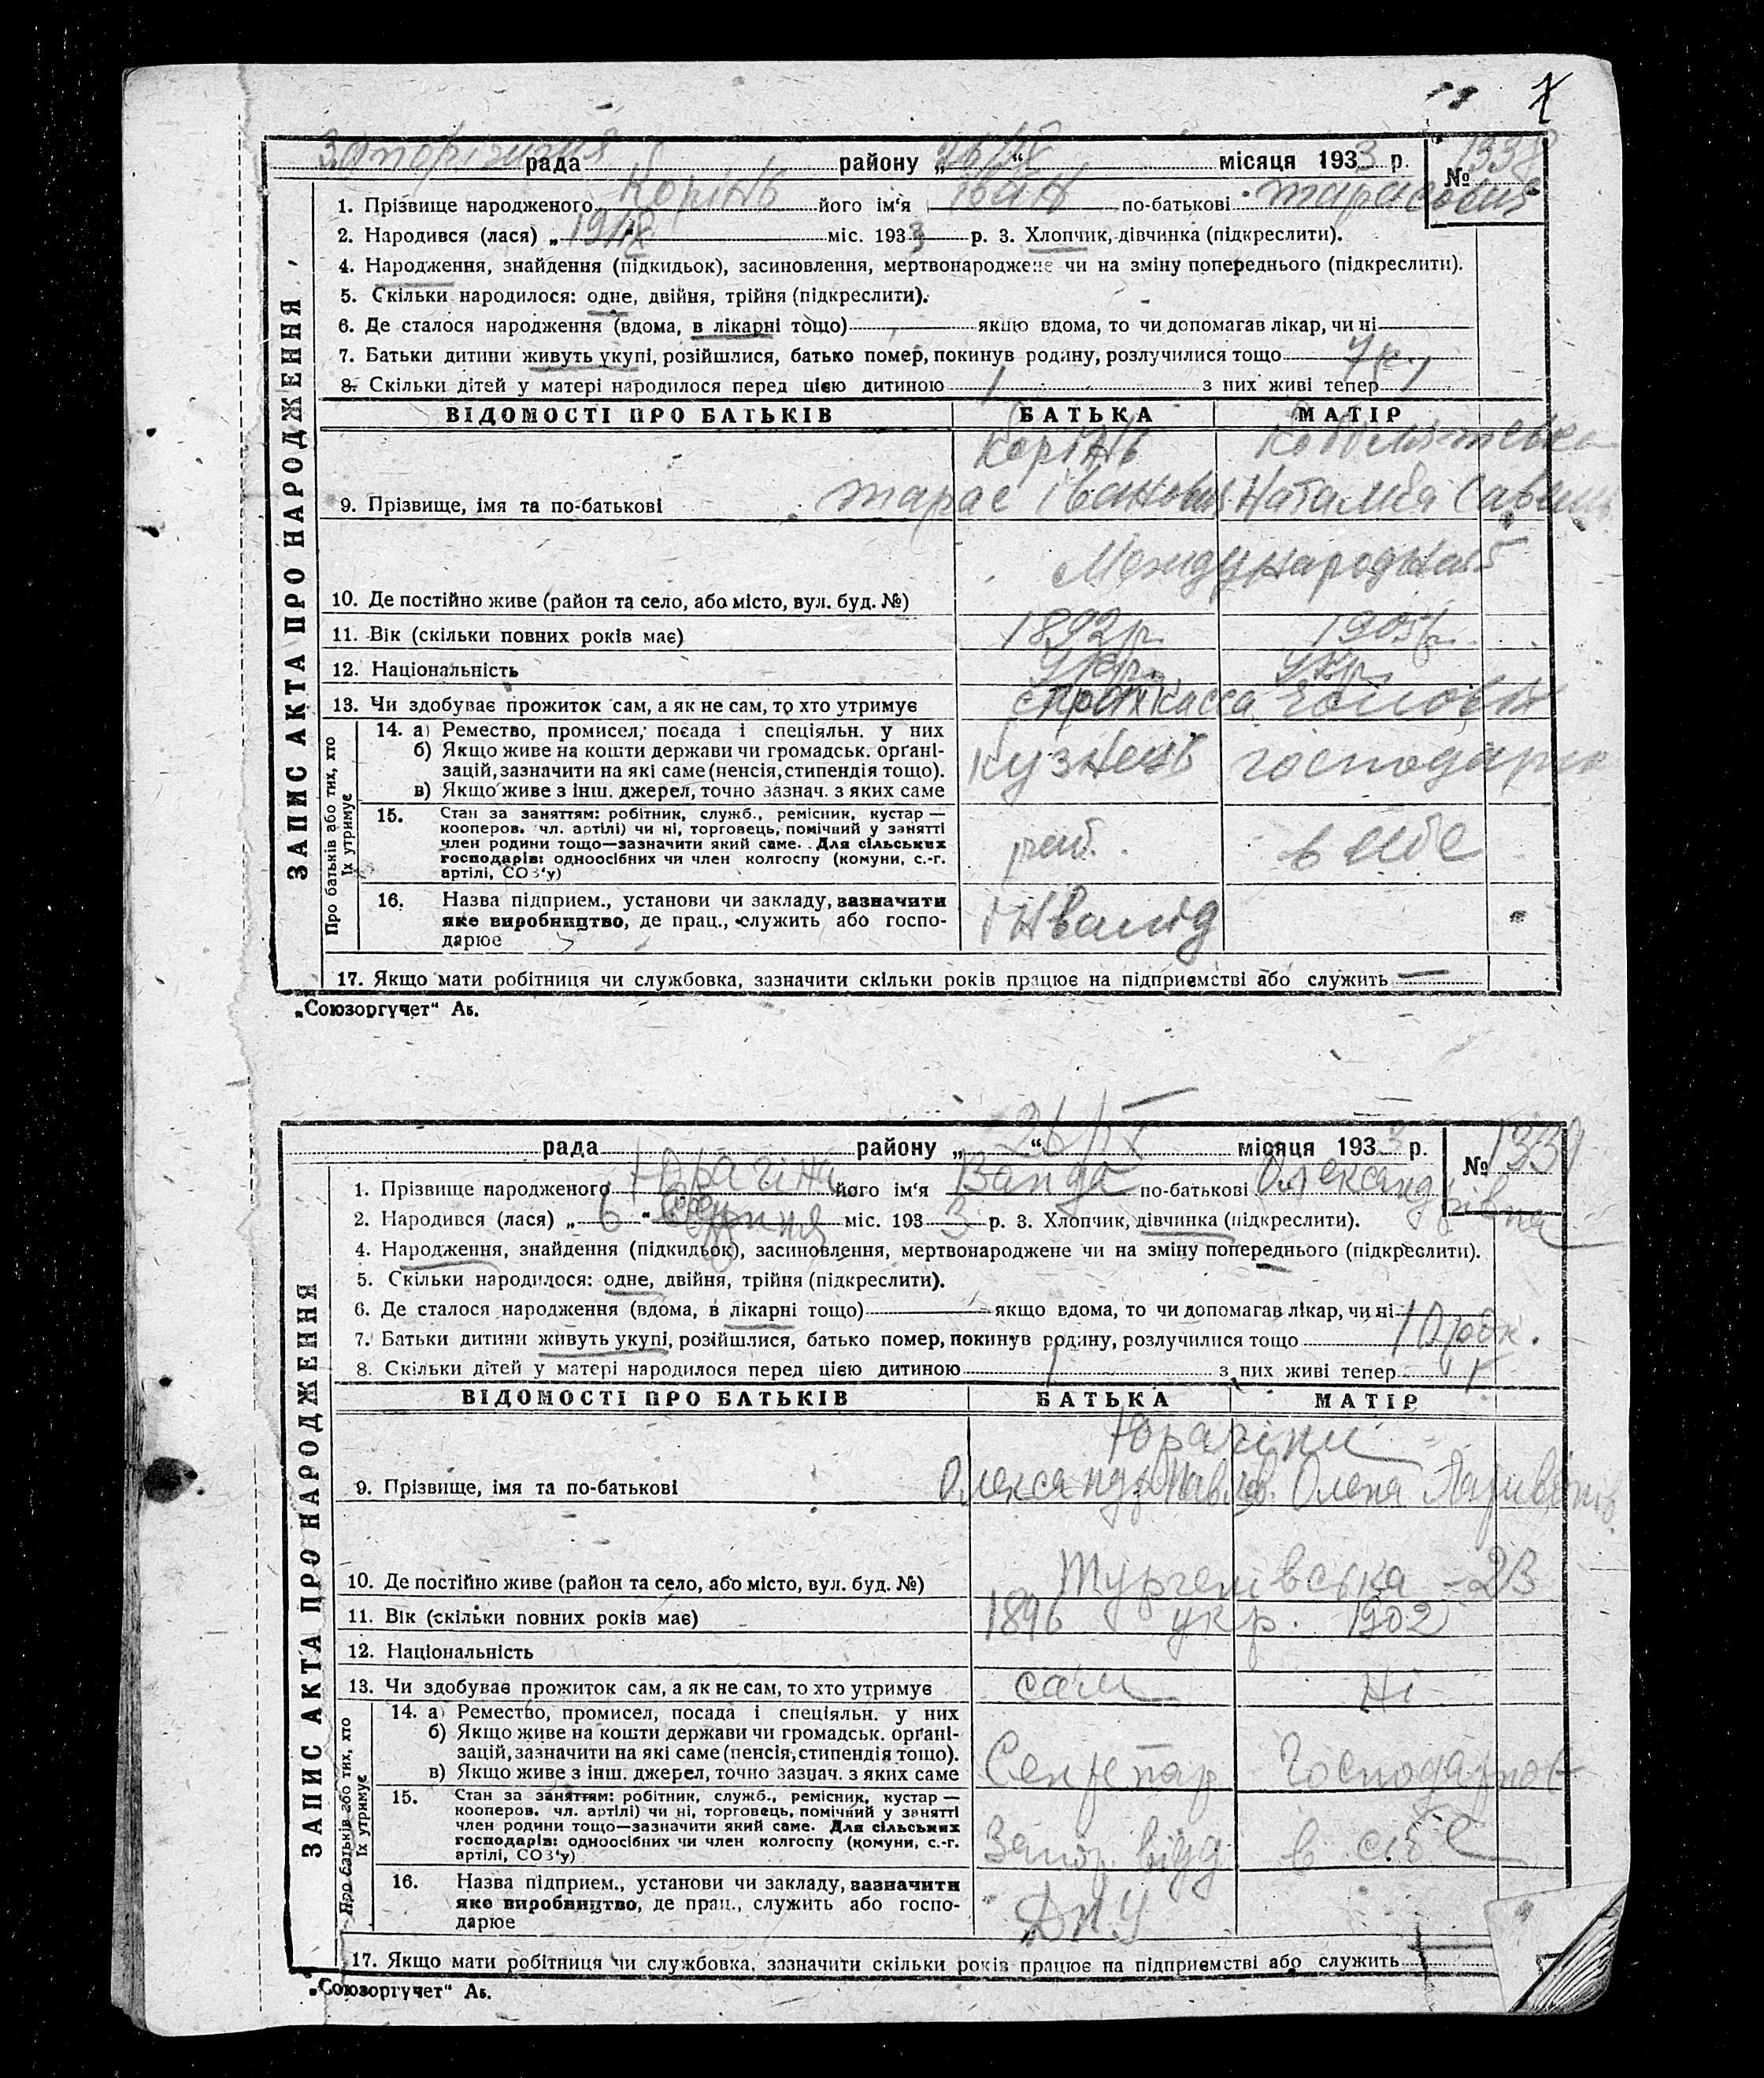 Запорізька рада района „26/IX“ місяця 1933 р. № 1338
1. Прізвище народженого Корінь його ім‘я Іван по-батькові Тарасович
2. Народився (лася) „ міс. 1933 р. 3. Хлопчик, дівчинка (підкреслити).
4. Народження, знайдення (підкидьок), засиновлення, мертвонароджене чи на зміну попереднього (підкреслити).
5. Скільки народилося: одне, двійня, трійня (підкреслити).
6. Де сталося народження (вдома, в лікарні тощо) якщо вдома, то чи допомагав лікар, чи ні
7. Батьки дитини живуть укупі, розійшлися, батько помер, покинув родину, розлучилися тощо
8. Скільки дітей у матері народилося перед цією дитиною 1 з них живі тепер 1
ЗАПИС АКТА ПРО НАРОДЖЕННЯ
ВІДОМОСТІ ПРО БАТЬКІВ БАТЬКА МАТІР
Корінь
9. Прізвище, імя та по-батькові Тарас Іванович Наталія
10. Де постійно живе (район та село, або місто, вул. буд. №)
11. Вік (скільки повних років має) 1892 р.
12. Національність Укр. Укр.
13. Чи здобуває прожиток сам, а як не сам, то хто утримує страхкасса чоловік
Про батьків або тих, хто їх утримує
14. а) Ремество, промисел, посада і спеціяльн. у них
б) Якщо живе на кошти держави чи громадськ. орґані-
зацій, зазначити на які саме (пенсія, стипендія тощо).
в) Якщо живе з інш. джерел, точно зазнач. з яких саме
кузнець господарює
15. Стан за заняттям: робітник, служб., ремісник, кустар —
кооперов. чл. артілі) чи ні, торговець, помічний у занятті
член родини тощо—зазначити який саме. Для сільських
господарів: одноосібних чи член колгоспу (комуни, с.-г.
артілі, СОЗ‘у)
роб. в себе
16. Назва підприєм., установи чи закладу, зазначити
яке виробництво, де прац., служить або госпо-
дарює
Інвалід
17. Якщо мати робітниця чи службовка, зазначити скільки років працює на підприємстві або служить —
„Союзоргучет“ Аб.
рада району „26/IX“ місяця 1933 р. № 1339
1. Прізвище народженого Юрагіна його ім‘я Ванда по-батькові Олександрівна
2. Народився (лася) „6“ серпня міс. 1933 р. 3. Хлопчик, дівчинка (підкреслити).
4. Народження, знайдення (підкидьок), засиновлення, мертвонароджене чи на зміну попереднього (підкреслити).
5. Скільки народилося: одне, двійня, трійня (підкреслити).
6. Де сталося народження (вдома, в лікарні тощо) якщо вдома, то чи допомагав лікар, чи ні
7. Батьки дитини живуть укупі, розійшлися, батько помер, покинув родину, розлучилися тощо 10 рок.
8. Скільки дітей у матері народилося перед цією дитиною 1 з них живі тепер 1
ЗАПИС АКТА ПРО НАРОДЖЕННЯ
ВІДОМОСТІ ПРО БАТЬКІВ БАТЬКА МАТІР
Юрагіни
9. Прізвище, імя та по-батькові Олександр Павлов. Олена
10. Де постійно живе (район та село, або місто, вул. буд. №) Тургенівська - 23
11. Вік (скільки повних років має) 1896 укр. 1902
12. Національність
13. Чи здобуває прожиток сам, а як не сам, то хто утримує сам ні
Про батьків або тих, хто їх утримує
14. а) Ремество, промисел, посада і спеціяльн. у них
б) Якщо живе на кошти держави чи громадськ. орґані-
зацій, зазначити на які саме (пенсія, стипендія тощо).
в) Якщо живе з інш. джерел, точно зазнач. з яких саме
Секретар Господарює
15. Стан за заняттям: робітник, служб., ремісник, кустар —
кооперов. чл. артілі) чи ні, торговець, помічний у занятті
член родини тощо—зазначити який саме. Для сільських
господарів: одноосібних чи член колгоспу (комуни, с.-г.
артілі, СОЗ‘у)
Запоз. відд. в себе
16. Назва підприєм., установи чи закладу, зазначити
яке виробництво, де прац., служить або госпо-
дарює
ДПУ
17. Якщо мати робітниця чи службовка, зазначити скільки років працює на підприємстві або служить
„Союзоргучет“ Аб.